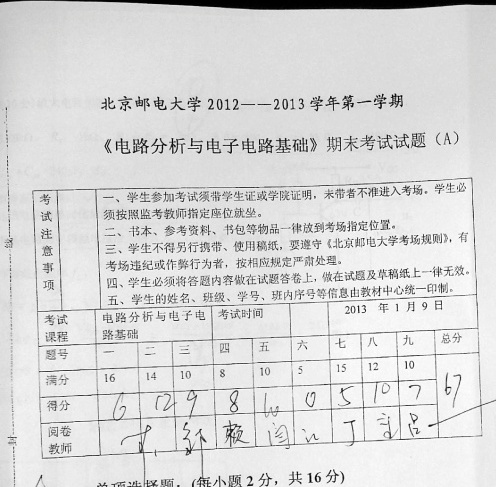 北京邮电大学 2012——2013 学年第一学期
《电路分析与电子电路基础》期末考试试题（A）
考试注意事项
一、学生参加考试须带学生证或学院证明，未带者不准进入考场。学生必
须按照监考教师指定座位就坐。
二、书本、参考资料、书包等物品一律放到考场指定位置。
三、学生不得另行携带、使用稿纸，要遵守《北京邮电大学考场规则》，有
考场违纪或作弊行为者，按相应规定严肃处理。
四、学生必须将答题内容做在试题答卷上，做在试题及草稿纸上一律无效。
五、学生的姓名、班级、学号、班内序号等信息由教材中心统一印制。
考试课程 电路分析与电子电路基础 考试时间 2013 年 1 月 9 日
题号 一 二 三 四 五 六 七 八 九 总分
满分 16 14 10 8 10 5 15 12 10
得分 6 12 9 8 10 0 5 10 7 67
阅卷教师 赖 闫 丁 吕
单项选择题：（每小题 2 分，共 16 分）